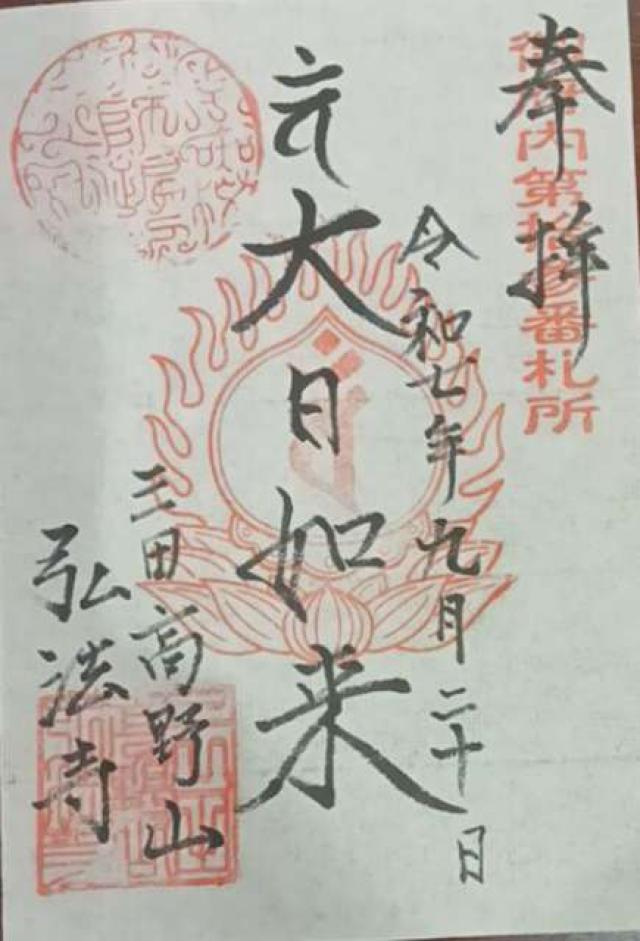 奉拝
御府内第拾参番札所
令和七年九月二十日
大日如来
三田高野山
弘法寺